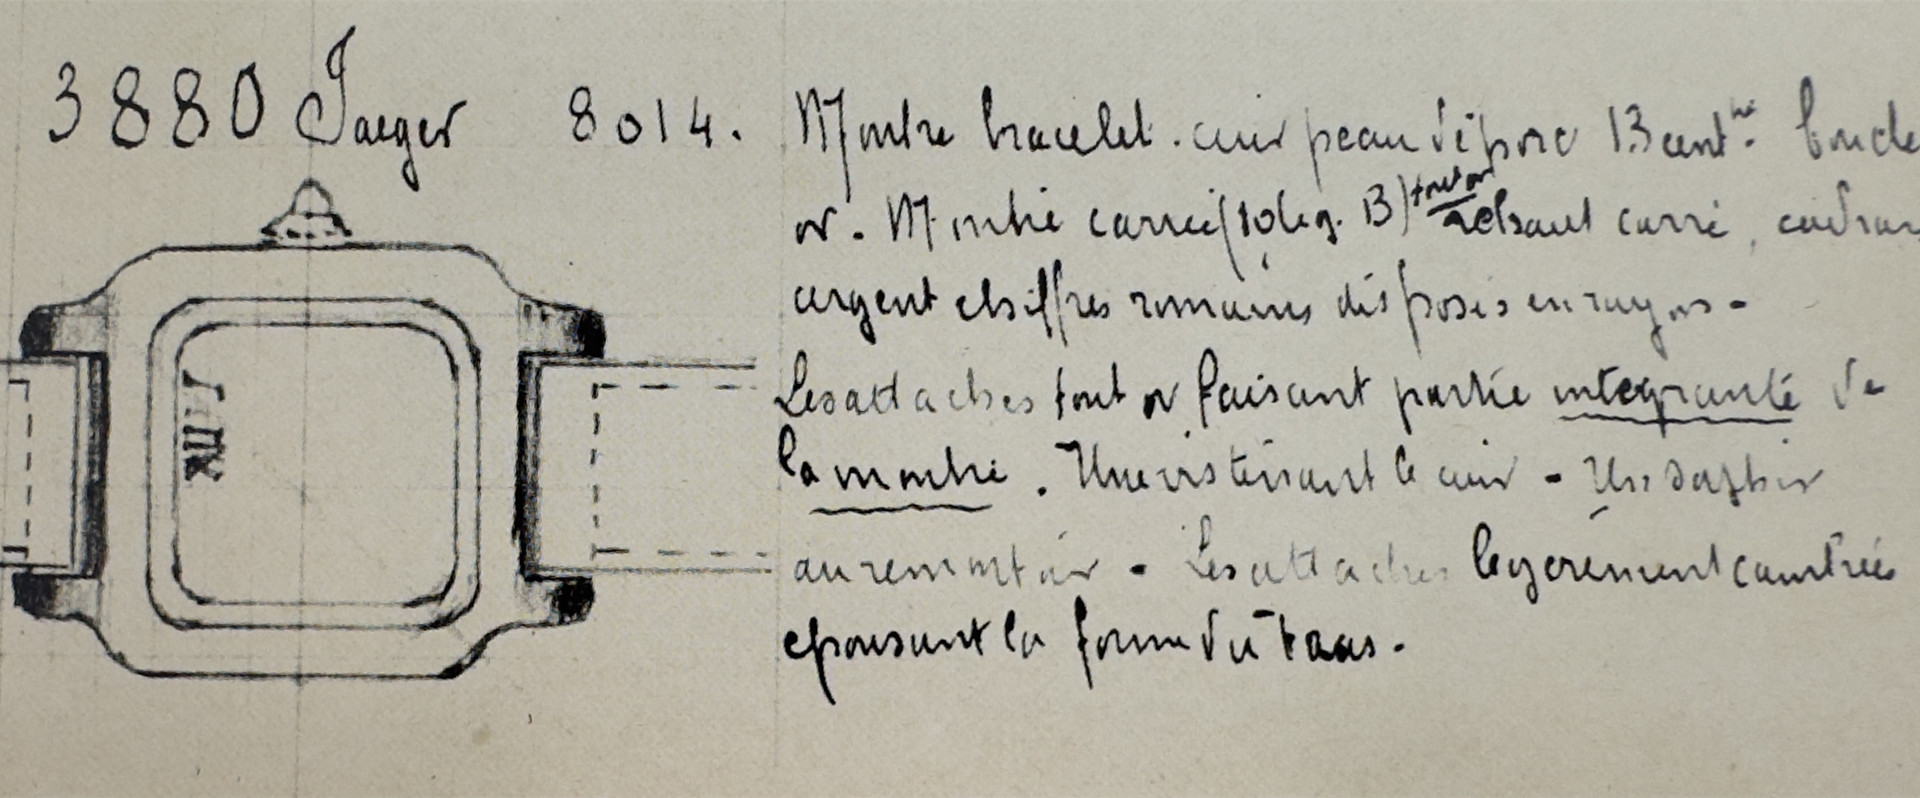 3880 Jaeger 8014. Montre bracelet. cuir peau de porc 13 cent. boucle
or. Montre carrée (10 lig. B) tout or rehaut carré, cadran
argent chiffres romains disposés en rayons -
Les attaches tout or faisant partie intégrante de
la montre. Une vis tenant le cuir - Un saphir
au remontoir - Les attaches légèrement cambrées
épousant la forme du bras.
XII I